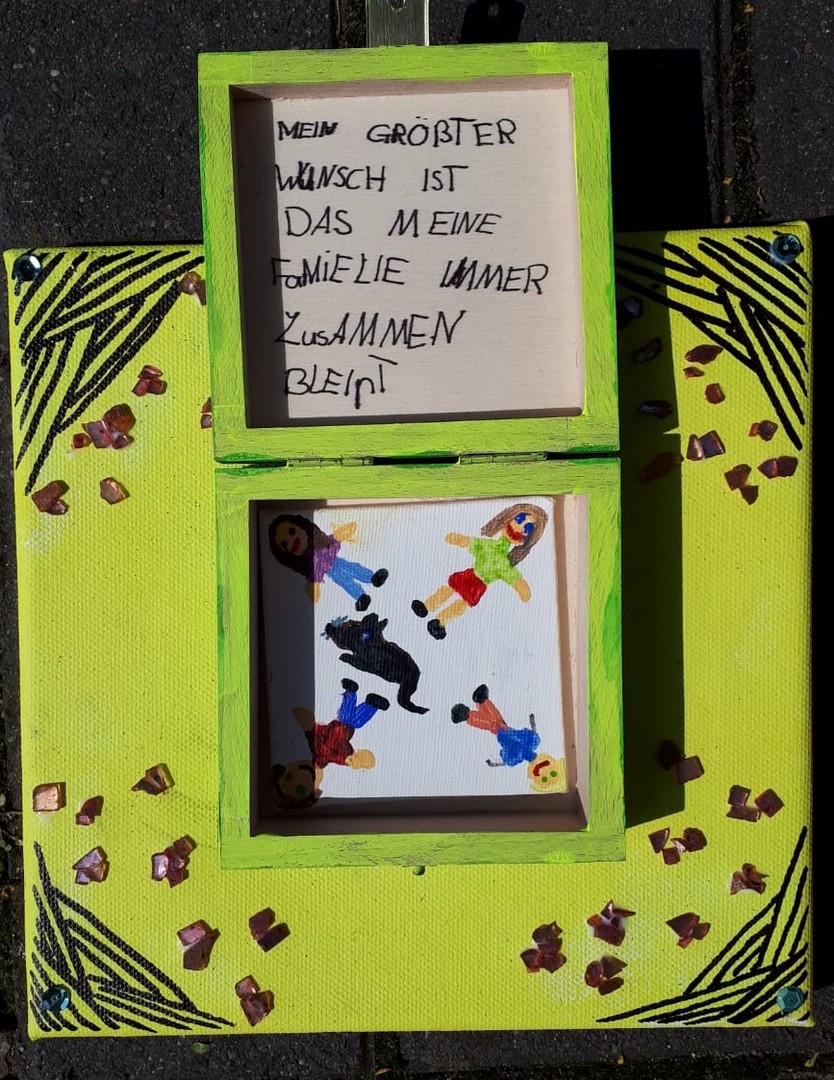 MEIN GRÖßTER
WUNSCH IST
DAS MEINE
FaMiELIE IMMER
ZusAMMEN
BLEIpT